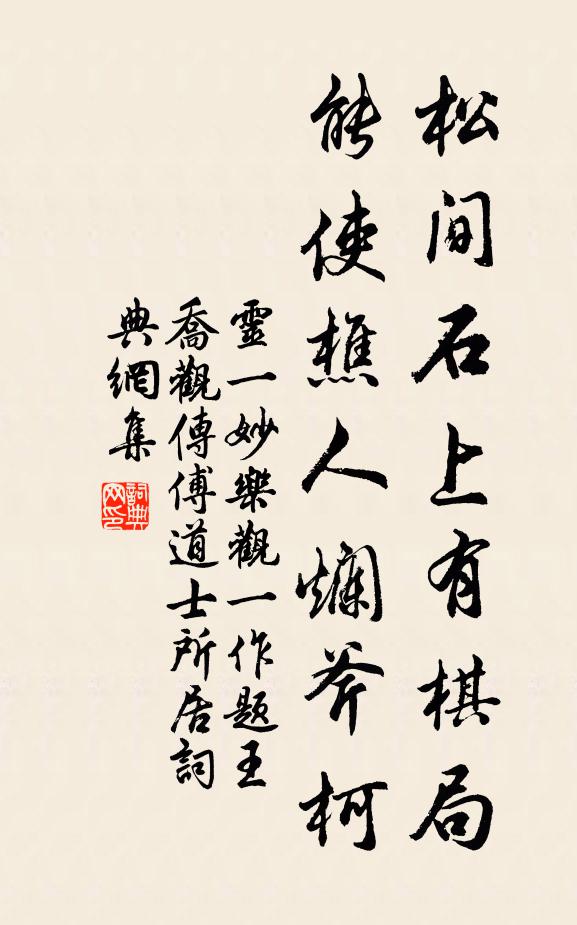 松间石上有棋局
能使樵人爛斧柯
靈一妙樂觀一作題王
喬觀傳傅道士所居詞
典網集
詞典
网印